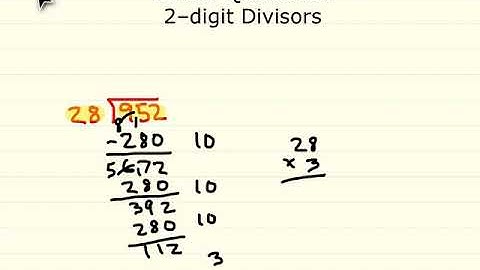 2-digit Divisors
28 952
8 1
- 280 10
5672
280 10
392
280 10
112
3
28
x 3